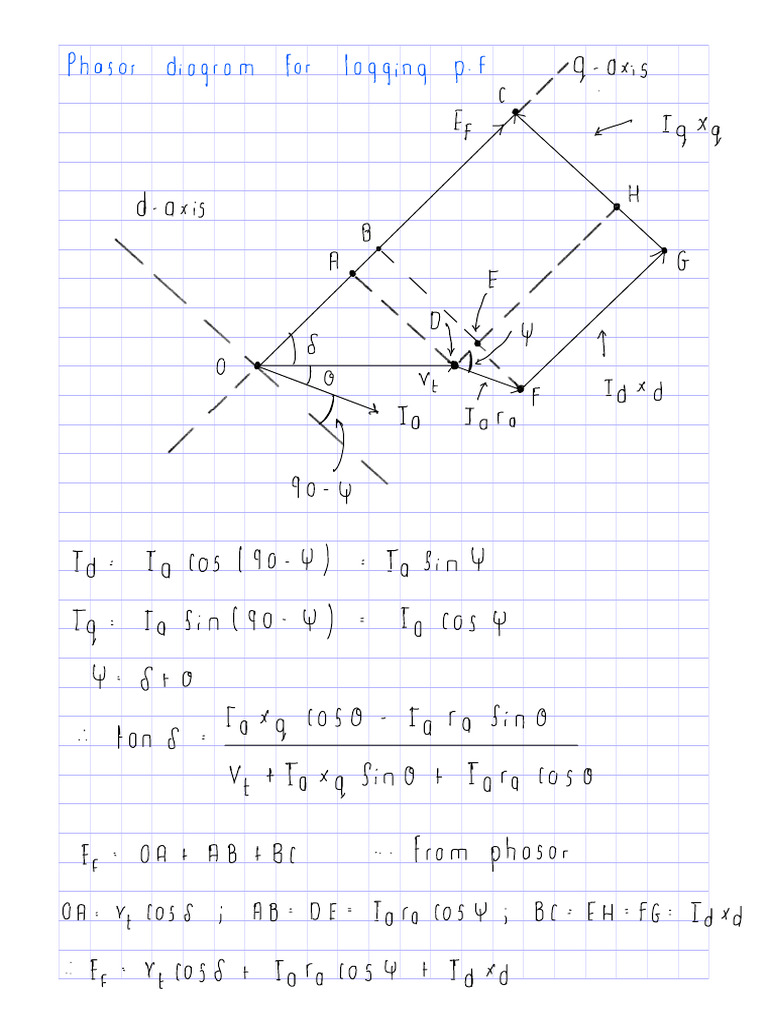 Phasor diagram for lagging p.f
q-axis
C
E_f
I_q x_q
H
d-axis
B
A
G
E
D
ψ
δ
O
θ
V_t
F
I_d x_d
I_a
I_a r_a
90-ψ
I_d = I_a cos (90-ψ) = I_a sin ψ
I_q = I_a sin (90-ψ) = I_a cos ψ
ψ = δ + θ
∴ tan δ = I_a x_q cos θ - I_a r_a sin θ
V_t + I_a x_q sin θ + I_a r_a cos θ
E_f = OA + AB + BC ... from phasor
OA = V_t cos δ ; AB = DE = I_a r_a cos ψ ; BC = EH = FG = I_d x_d
∴ E_f = V_t cos δ + I_a r_a cos ψ + I_d x_d